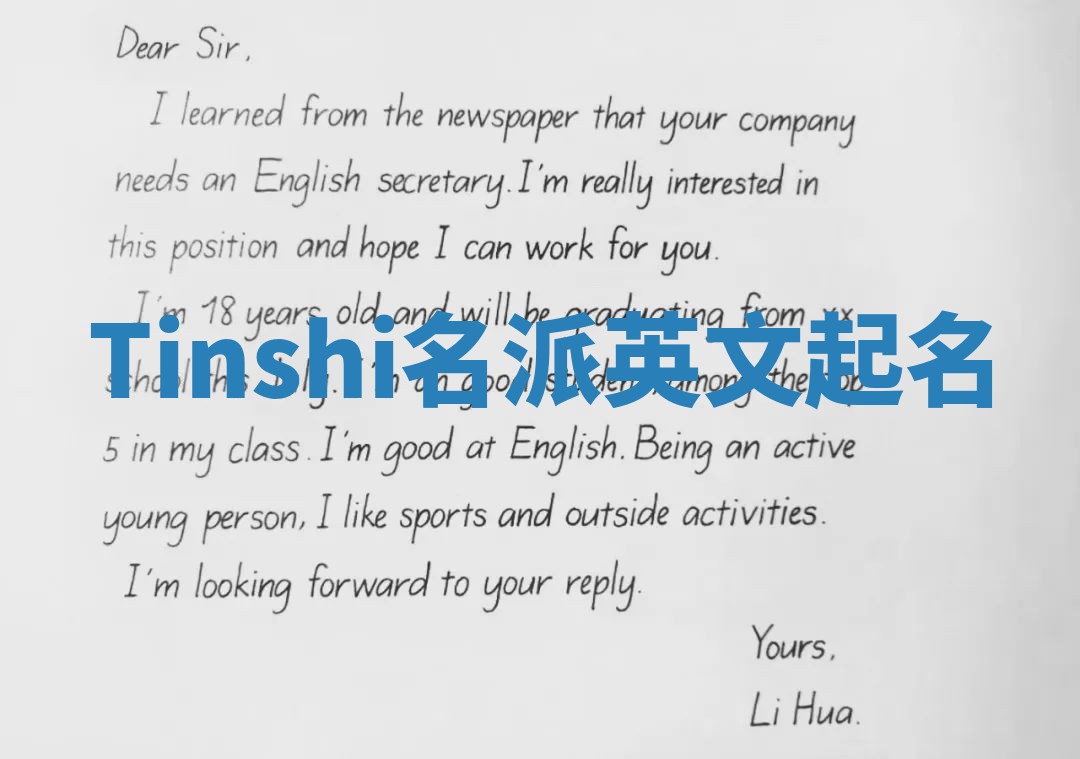 Dear Sir,
I learned from the newspaper that your company
needs an English secretary. I'm really interested in
this position and hope I can work for you.
I'm 18 years old and will be graduating from xx
Tinshi名派英文起名
school this July. I'm an good student, among the top
5 in my class. I'm good at English. Being an active
young person, I like sports and outside activities.
I'm looking forward to your reply.
Yours,
Li Hua.